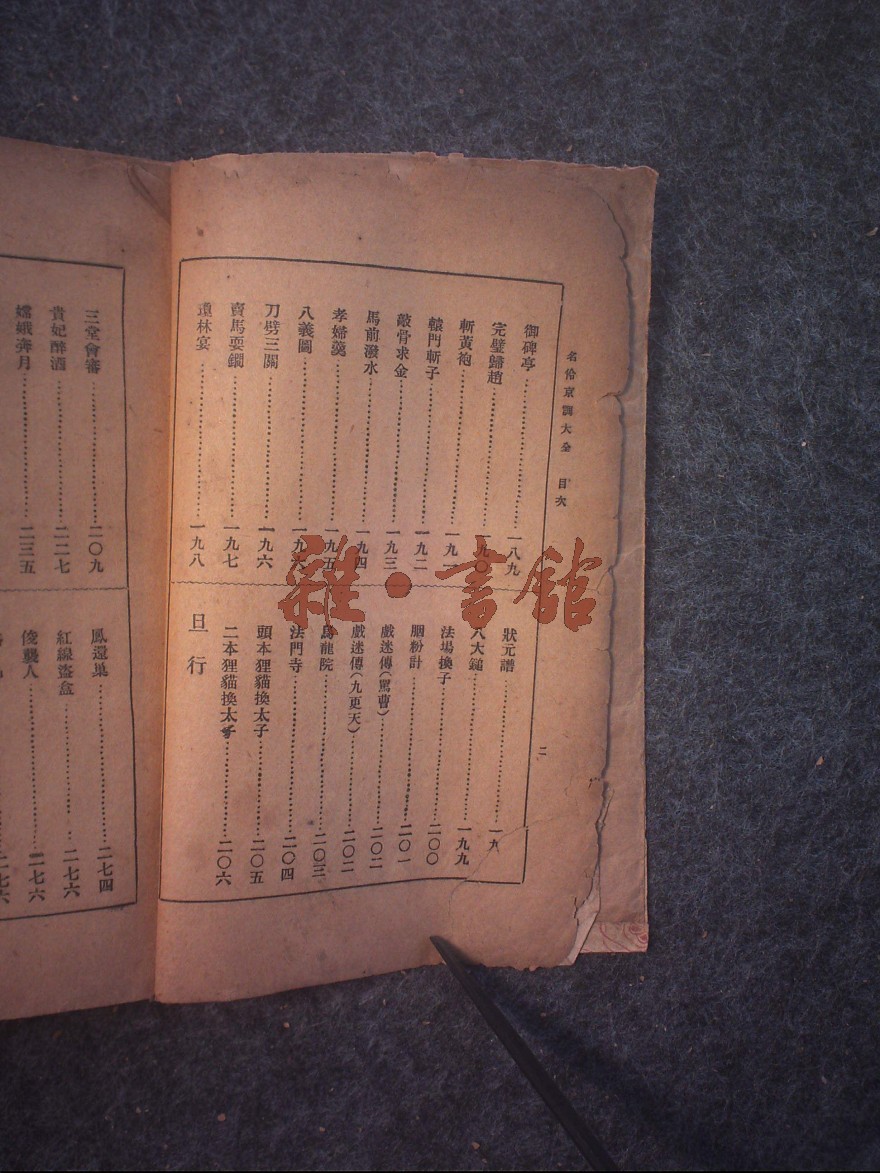 名伶京調大全　目次
二
御碑亭……一八九
完璧歸趙……一九〇
斬黃袍……一九一
轅門斬子……一九二
敲骨求金……一九三
馬前潑水……一九四
孝婦羹……一九五
八義圖……一九六
刀劈三關……一九六
賣馬耍鐧……一九七
瓊林宴……一九八
狀元譜……一九
八大鎚……一九九
法場換子……二〇〇
胭粉計……二〇一
戲迷傳(罵曹)……二〇二
戲迷傳(九更天)……二〇二
烏龍院……二〇三
法門寺……二〇四
頭本狸貓換太子……二〇五
二本狸貓換太子……二〇六
旦行
三堂會審……二〇九
貴妃醉酒……二二七
嫦娥奔月……二三五
鳳還巢……二七四
紅線盜盒……二七六
俊襲人……二七六
二七六
雜·書館